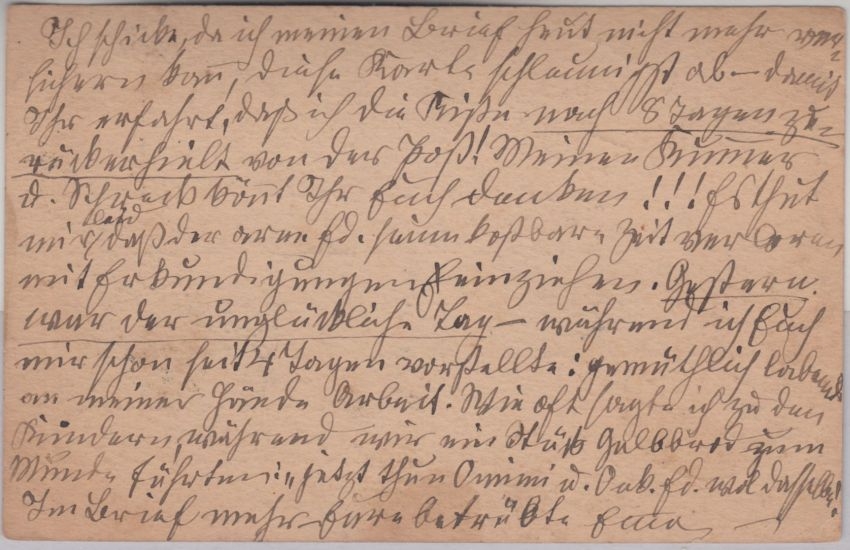 Ich schicke, da ich meinen Brief heut nicht mehr ver-
sichern kann, diese Karte schleunigst ab – damit
Ihr erfahrt, daß ich die Kiste nach 8 Tagen zu-
rückerhielt von der Post! Meinen Kummer
u. Schreck könnt Ihr Euch denken!!! Es thut
mir leid, daß der arme Ed. seine kostbare Zeit verloren
mit Erkundigungen einziehen. Gestern
war der unglückliche Tag – während ich Euch
mir schon seit 4 Tagen vorstellte: gemüthlich labend
an meiner Hände Arbeit. Wie oft sagte ich zu den
Kindern, während wir ein Stück Gelbbrod zum
Munde führten: „jetzt thun Omimi u. Onk. Ed. wol dasselbe!
Im Brief mehr Eure betrübte